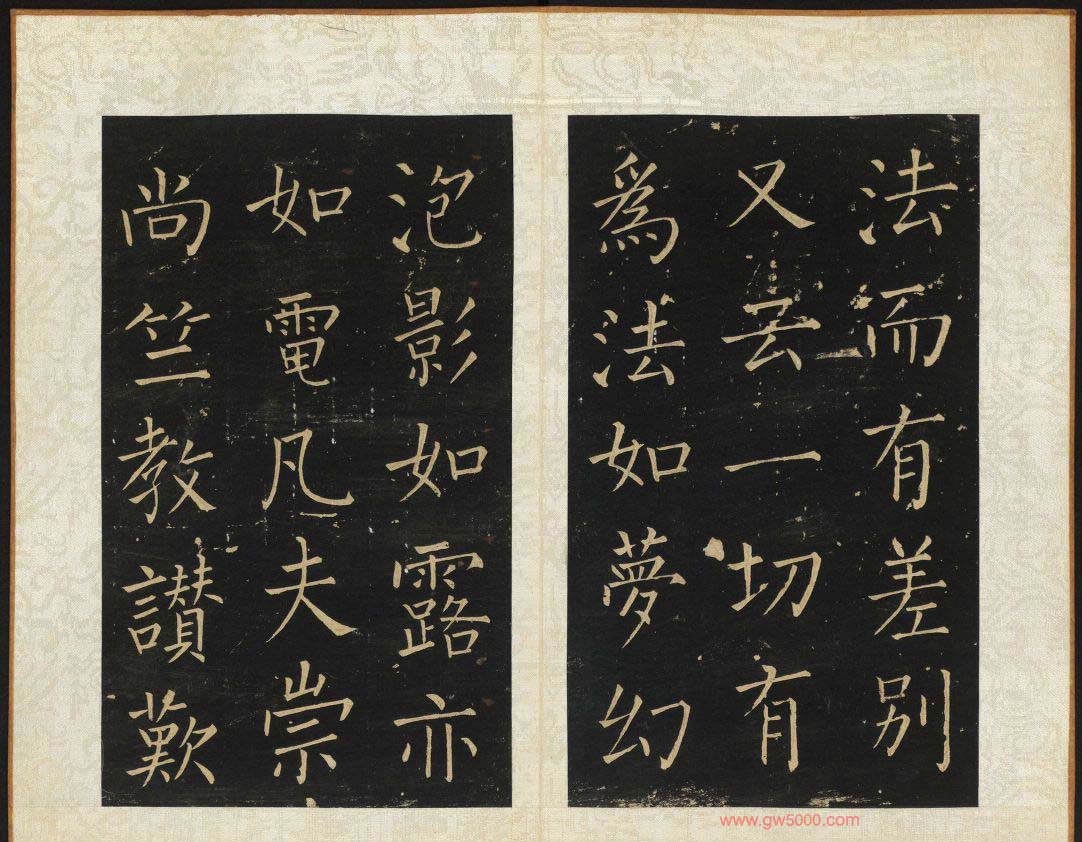 法而有差别
又云一切有
為法如夢幻
泡影如露亦
如電凡夫崇
尚竺教讃歎
www.gw5000.com